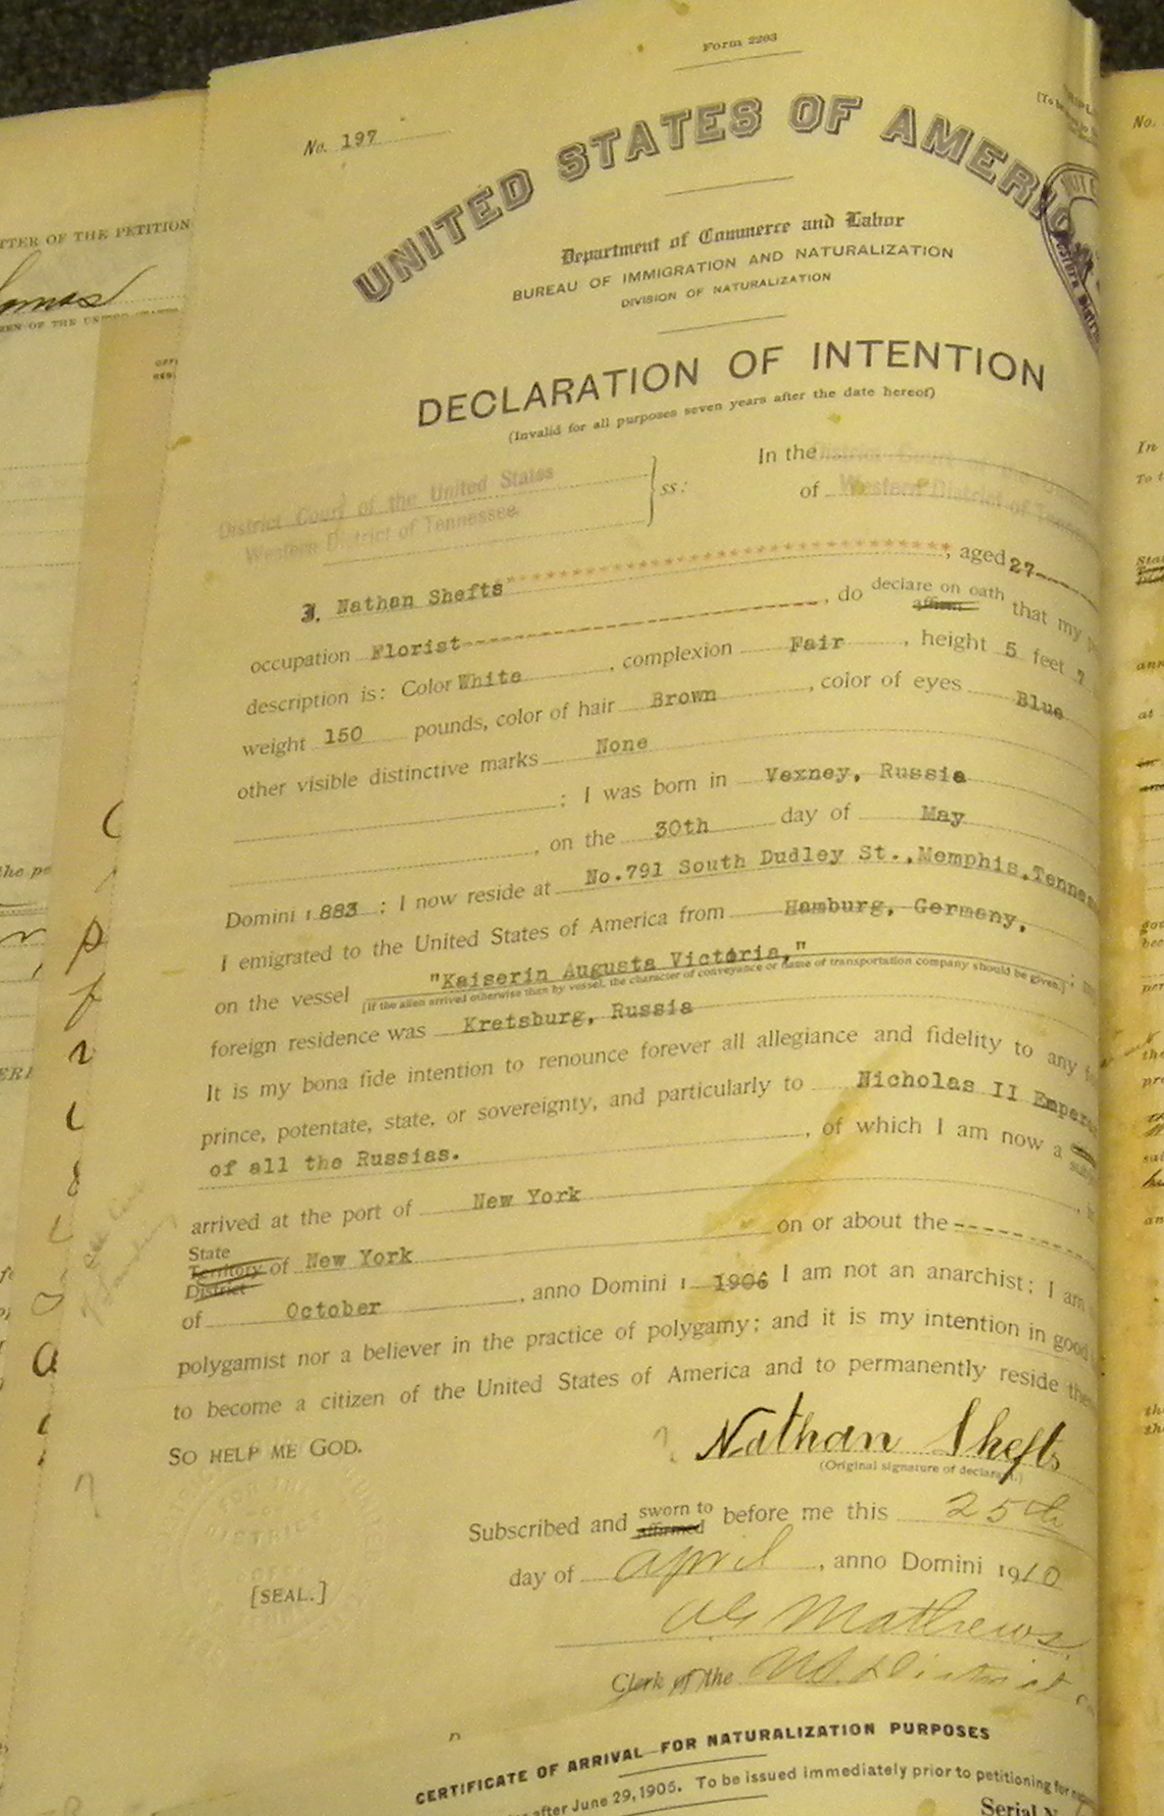 Form 2203
No. 197
UNITED STATES OF AMERI
Department of Commerce and Labor
BUREAU OF IMMIGRATION AND NATURALIZATION
DIVISION OF NATURALIZATION
DECLARATION OF INTENTION
(Invalid for all purposes seven years after the date hereof)
District Court of the United States
Western District of Tennessee.
ss:
In the District Court of the
of Western District of Tenn
I, Nathan Shefts, aged 27
occupation Florist, do declare on oath affirm that my
description is: Color White, complexion Fair, height 5 feet 7
weight 150 pounds, color of hair Brown, color of eyes Blue
other visible distinctive marks None
; I was born in Vexney, Russia
, on the 30th day of May
Domini 1883 ; I now reside at No.791 South Dudley St., Memphis, Tennes
I emigrated to the United States of America from Hamburg, Germany,
on the vessel "Kaiserin Augusta Victoria,"
(If the alien arrived otherwise than by vessel, the character of conveyance or name of transportation company should be given.)
foreign residence was Kretsburg, Russia
It is my bona fide intention to renounce forever all allegiance and fidelity to any
prince, potentate, state, or sovereignty, and particularly to Nicholas II Emper
of all the Russias. , of which I am now a
arrived at the port of New York
State Territory District of New York on or about the
of October, anno Domini 1 1906 I am not an anarchist; I am
polygamist nor a believer in the practice of polygamy; and it is my intention in good
to become a citizen of the United States of America and to permanently reside
SO HELP ME GOD.
Nathan Shefts
(Original signature of declarant.)
Subscribed and sworn to affirmed before me this 25th
day of April, anno Domini 1910
[SEAL.]
Mathews
Clerk of the District
CERTIFICATE OF ARRIVAL—FOR NATURALIZATION PURPOSES
after June 29, 1906. To be issued immediately prior to petitioning for
Serial
TTER OF THE PETITION
No.
In